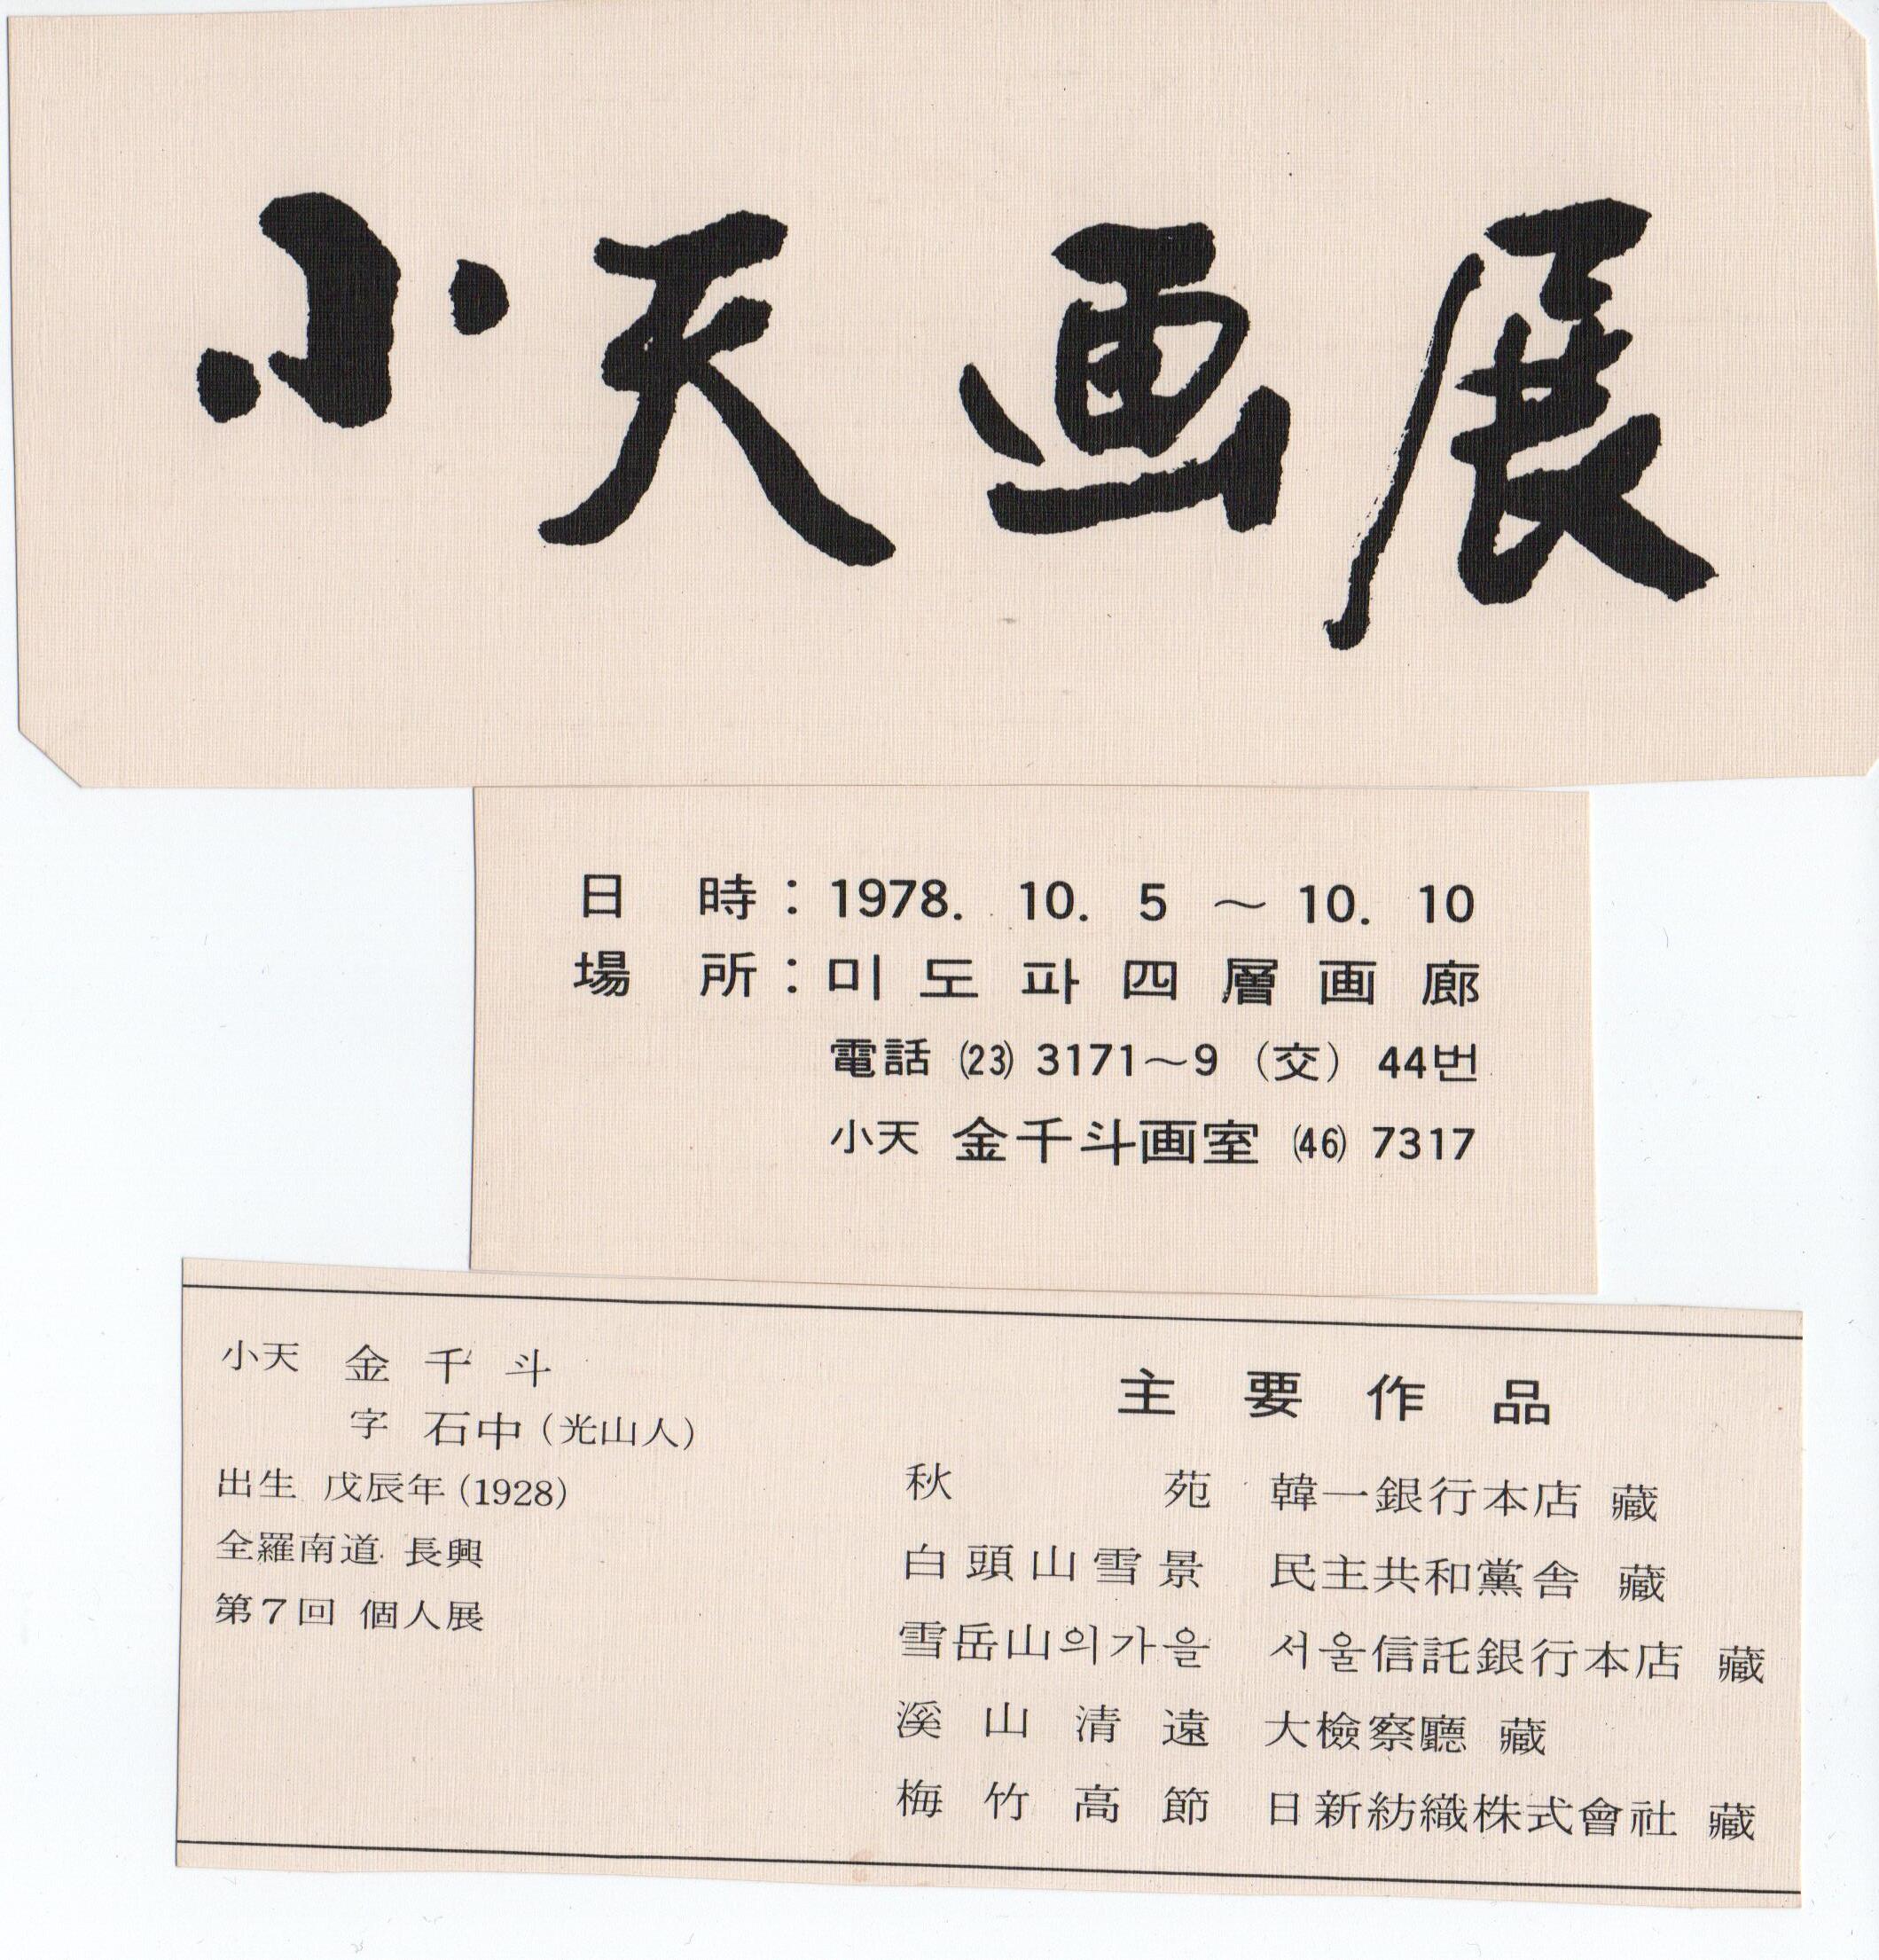 小天画展
日時：1978. 10. 5 ～ 10. 10
場所：미도파四層画廊
電話 (23) 3171～9 (交) 44번
小天 金千斗画室 (46) 7317
小天 金千斗
字 石中 (光山人)
出生 戊辰年 (1928)
全羅南道 長興
第7回 個人展
主要作品
秋苑 韓一銀行本店 藏
白頭山雪景 民主共和黨舎 藏
雪岳山의가을 서울信託銀行本店 藏
溪山清遠 大檢察廳 藏
梅竹高節 日新紡織株式會社 藏